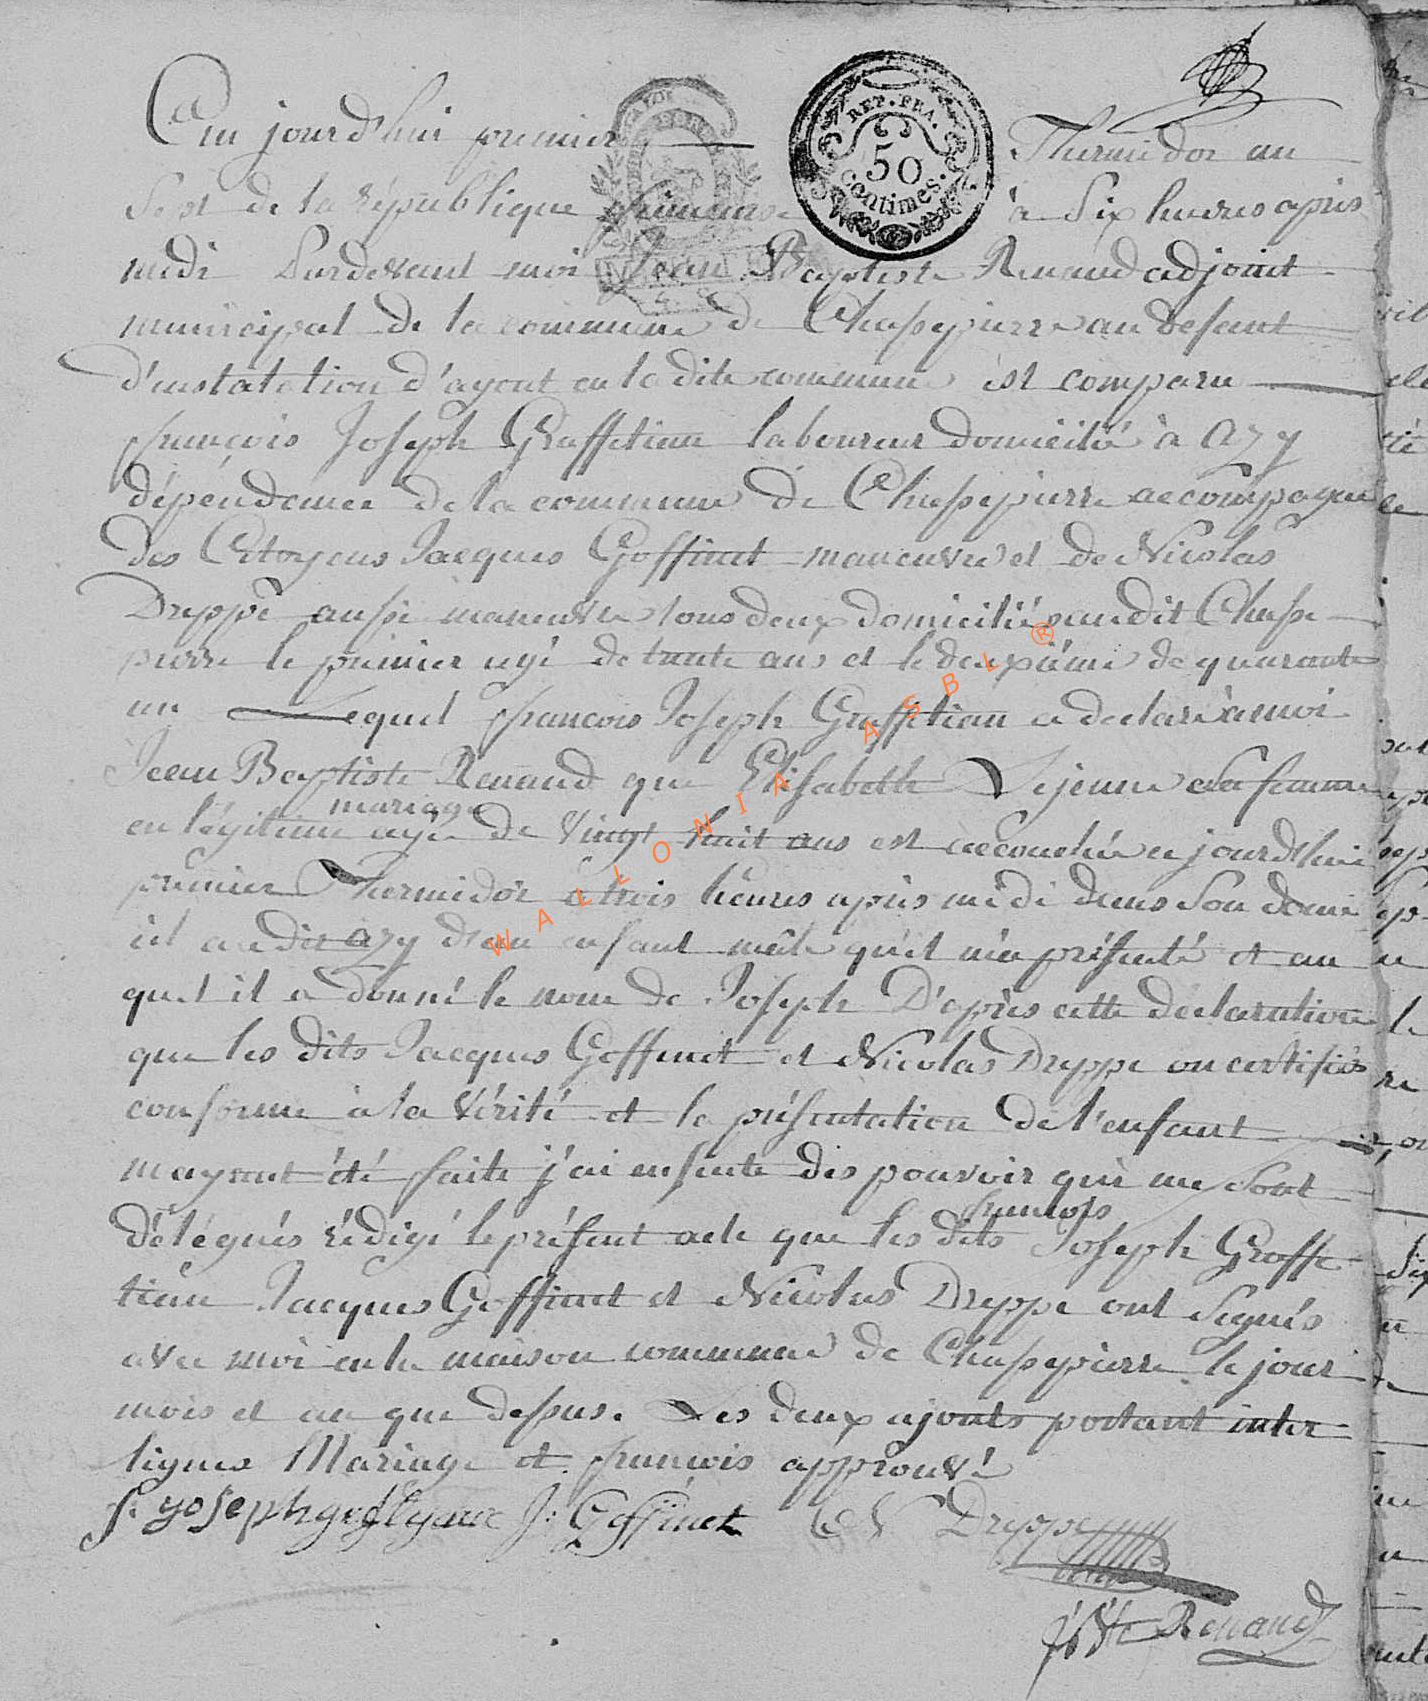 Cejourd'hui premier Thermidor an
Sept de la république française à Six heures après
midi Pardevant moi Jean Baptiste Renaud adjoint
municipal de la commune de Chassepierre au defaut
d'instalation d'agent en la dite commune est comparu
françois Joseph Graffetiau laboureur domicilié à Azy
dépendance de la commune de Chassepierre accompagné
des Citoyens Jacques Goffinet maneuvre et de Nicolas
Dreppe aussi maneuvre tous deux domiciliés audit Chasse
pierre le premier agé de trente ans et le deuxième de quarante
un Lequel francois Joseph Graffetiau a declaré à moi
Jean Baptiste Renaud que Elisabette Lejeune sa femme
mariage
en légitime agée de Vingt huit ans est accouchée cejourd'hui
premier Thermidor à trois heures après midi dans son domi
cil audit azy d'un enfant mâle qu'il m'a présenté et au
quel il a donné le nom de Joseph D'après cette déclaration
que les dits Jacques Goffinet et Nicolas Dreppe on certifiés
conforme à la Vérité et la présentation de l'enfant
mayant été faite j'ai ensuite des pouvoir qui me sont
francois
délégués rédigé le présent acte que les dits Joseph Graffe
tiau Jacques Goffinet et Nicolas Dreppe ont Signés
avec moi en la maison commune de Chassepierre le jour
mois et an que dessus. Les deux ajouts portant inter
lignes Mariage et françois approuvé
f. yoseph J: Goffinet N Dreppe
Bte Renaud
REP. FRA.
50
centimes.
WALLONIA ASBL ®